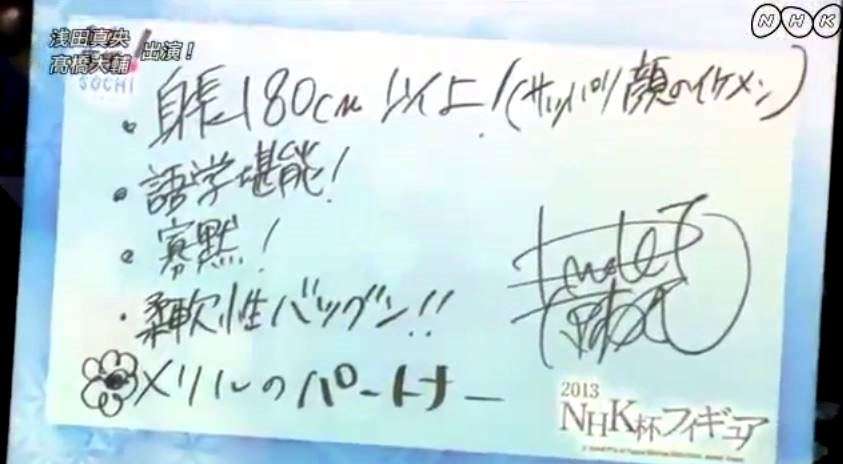 浅田真央
高橋大輔 出演！
NHK
SOCHI
・身長180cm以上！（サッパリ顔のイケメン）
・語学堪能！
・寡黙！
・柔軟性バツグン！！
メリルのパートナー
2013
NHK杯フィギュア